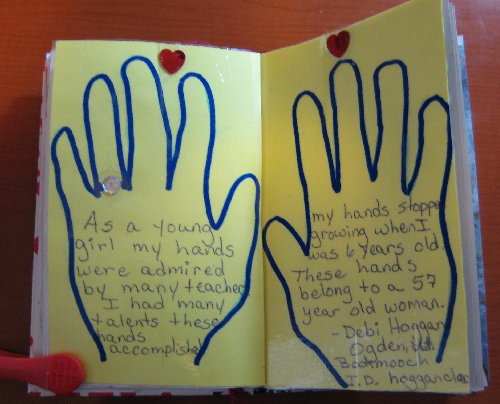 As a young
girl my hands
were admired
by many teacher
I had many
talents these
hands
accomplished
my hands stopped
growing when I
was 6 years old.
These hands
belong to a 57
year old woman.
-Debi Hoggan
Ogden Ut.
Bookmooch
I.D. hogganclan